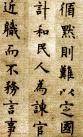 循默則難以國
計和民人為諫官
近職而不務言事